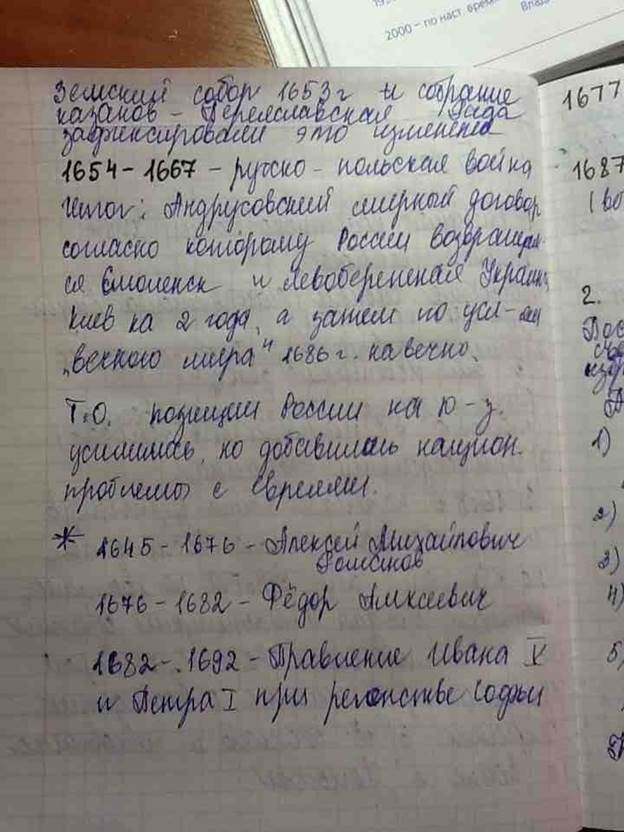 2000 – по наст. врем
Влад
Земский собор 1653 г и собрание
казаков – Переяславская Рада
зафиксировали это изменение
1654 – 1667 – русско – польская война
Итог: Андрусовский мирный договор
согласно которому России возвращал-
ся Смоленск и левобережная Украин
Киев на 2 года, а затем по усл-ям
„вечного мира" 1686 г. навечно.
Т.О. позиции России на ю – з.
усилились, но добавились национ.
проблемы с евреями.
* 1645 – 1676 – Алексей Михайлович
Романов
1676 – 1682 – Фёдор Алексеевич
1682 – 1692 – Правление Ивана V
и Петра I при регентстве Софьи
1677
1687
(во
2.
1)
2)
3)
4)
5)